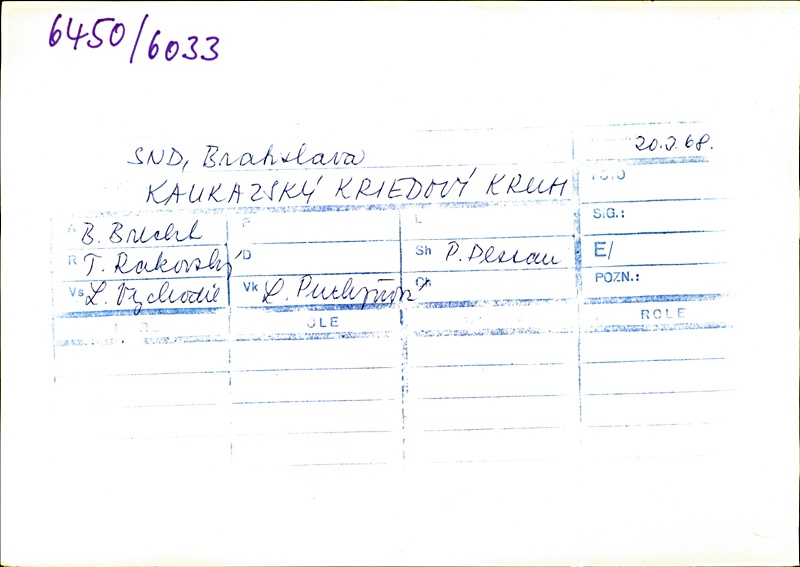 6450/6033
20.2.68.
SND, Bratislava
KAUKAZSKÝ KRIEDOVÝ KRUH
FOTO
SIG.:
A B. Brecht P L
R T. Rakovský D Sh P. Dessau E/
Vs L. Vychodil Vk L. Purkyňová Ch POZN.:
ROLE
ROLE